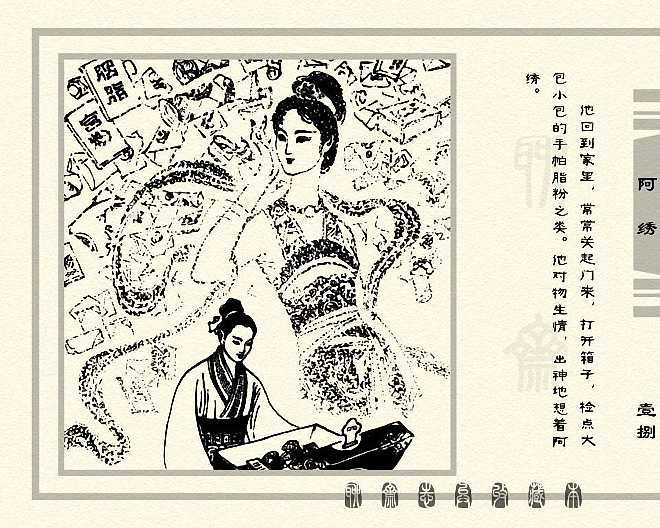 阿绣
壹捌
他回到家里，常常关起门来，打开箱子，检点大
包小包的手帕脂粉之类。他对物生情，出神地想着阿
绣。
胭脂
宫粉
聊斋志异收藏本